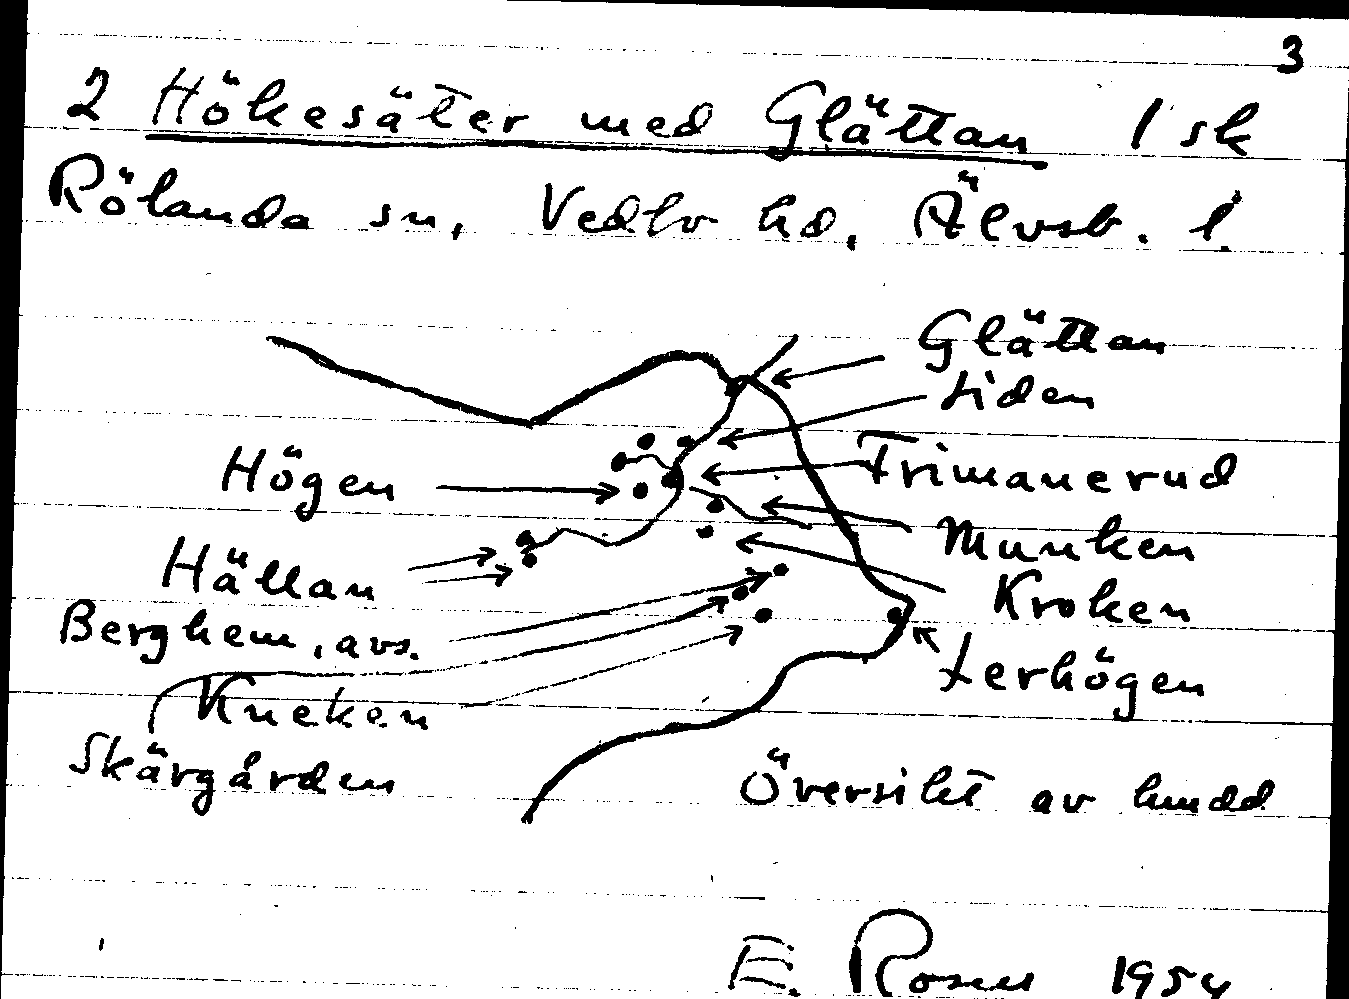 3
2 Hökesäter med Glättan 1 sk
Rölanda sn, Vedbo hd, Älvsb. l.
Glättan
Liden
Högen
Trimanerud
Hällan
Munken
Kroken
Berghem, avs.
Lerhögen
Kneken
Skärgården
Översikt av
E. Rosell 1954